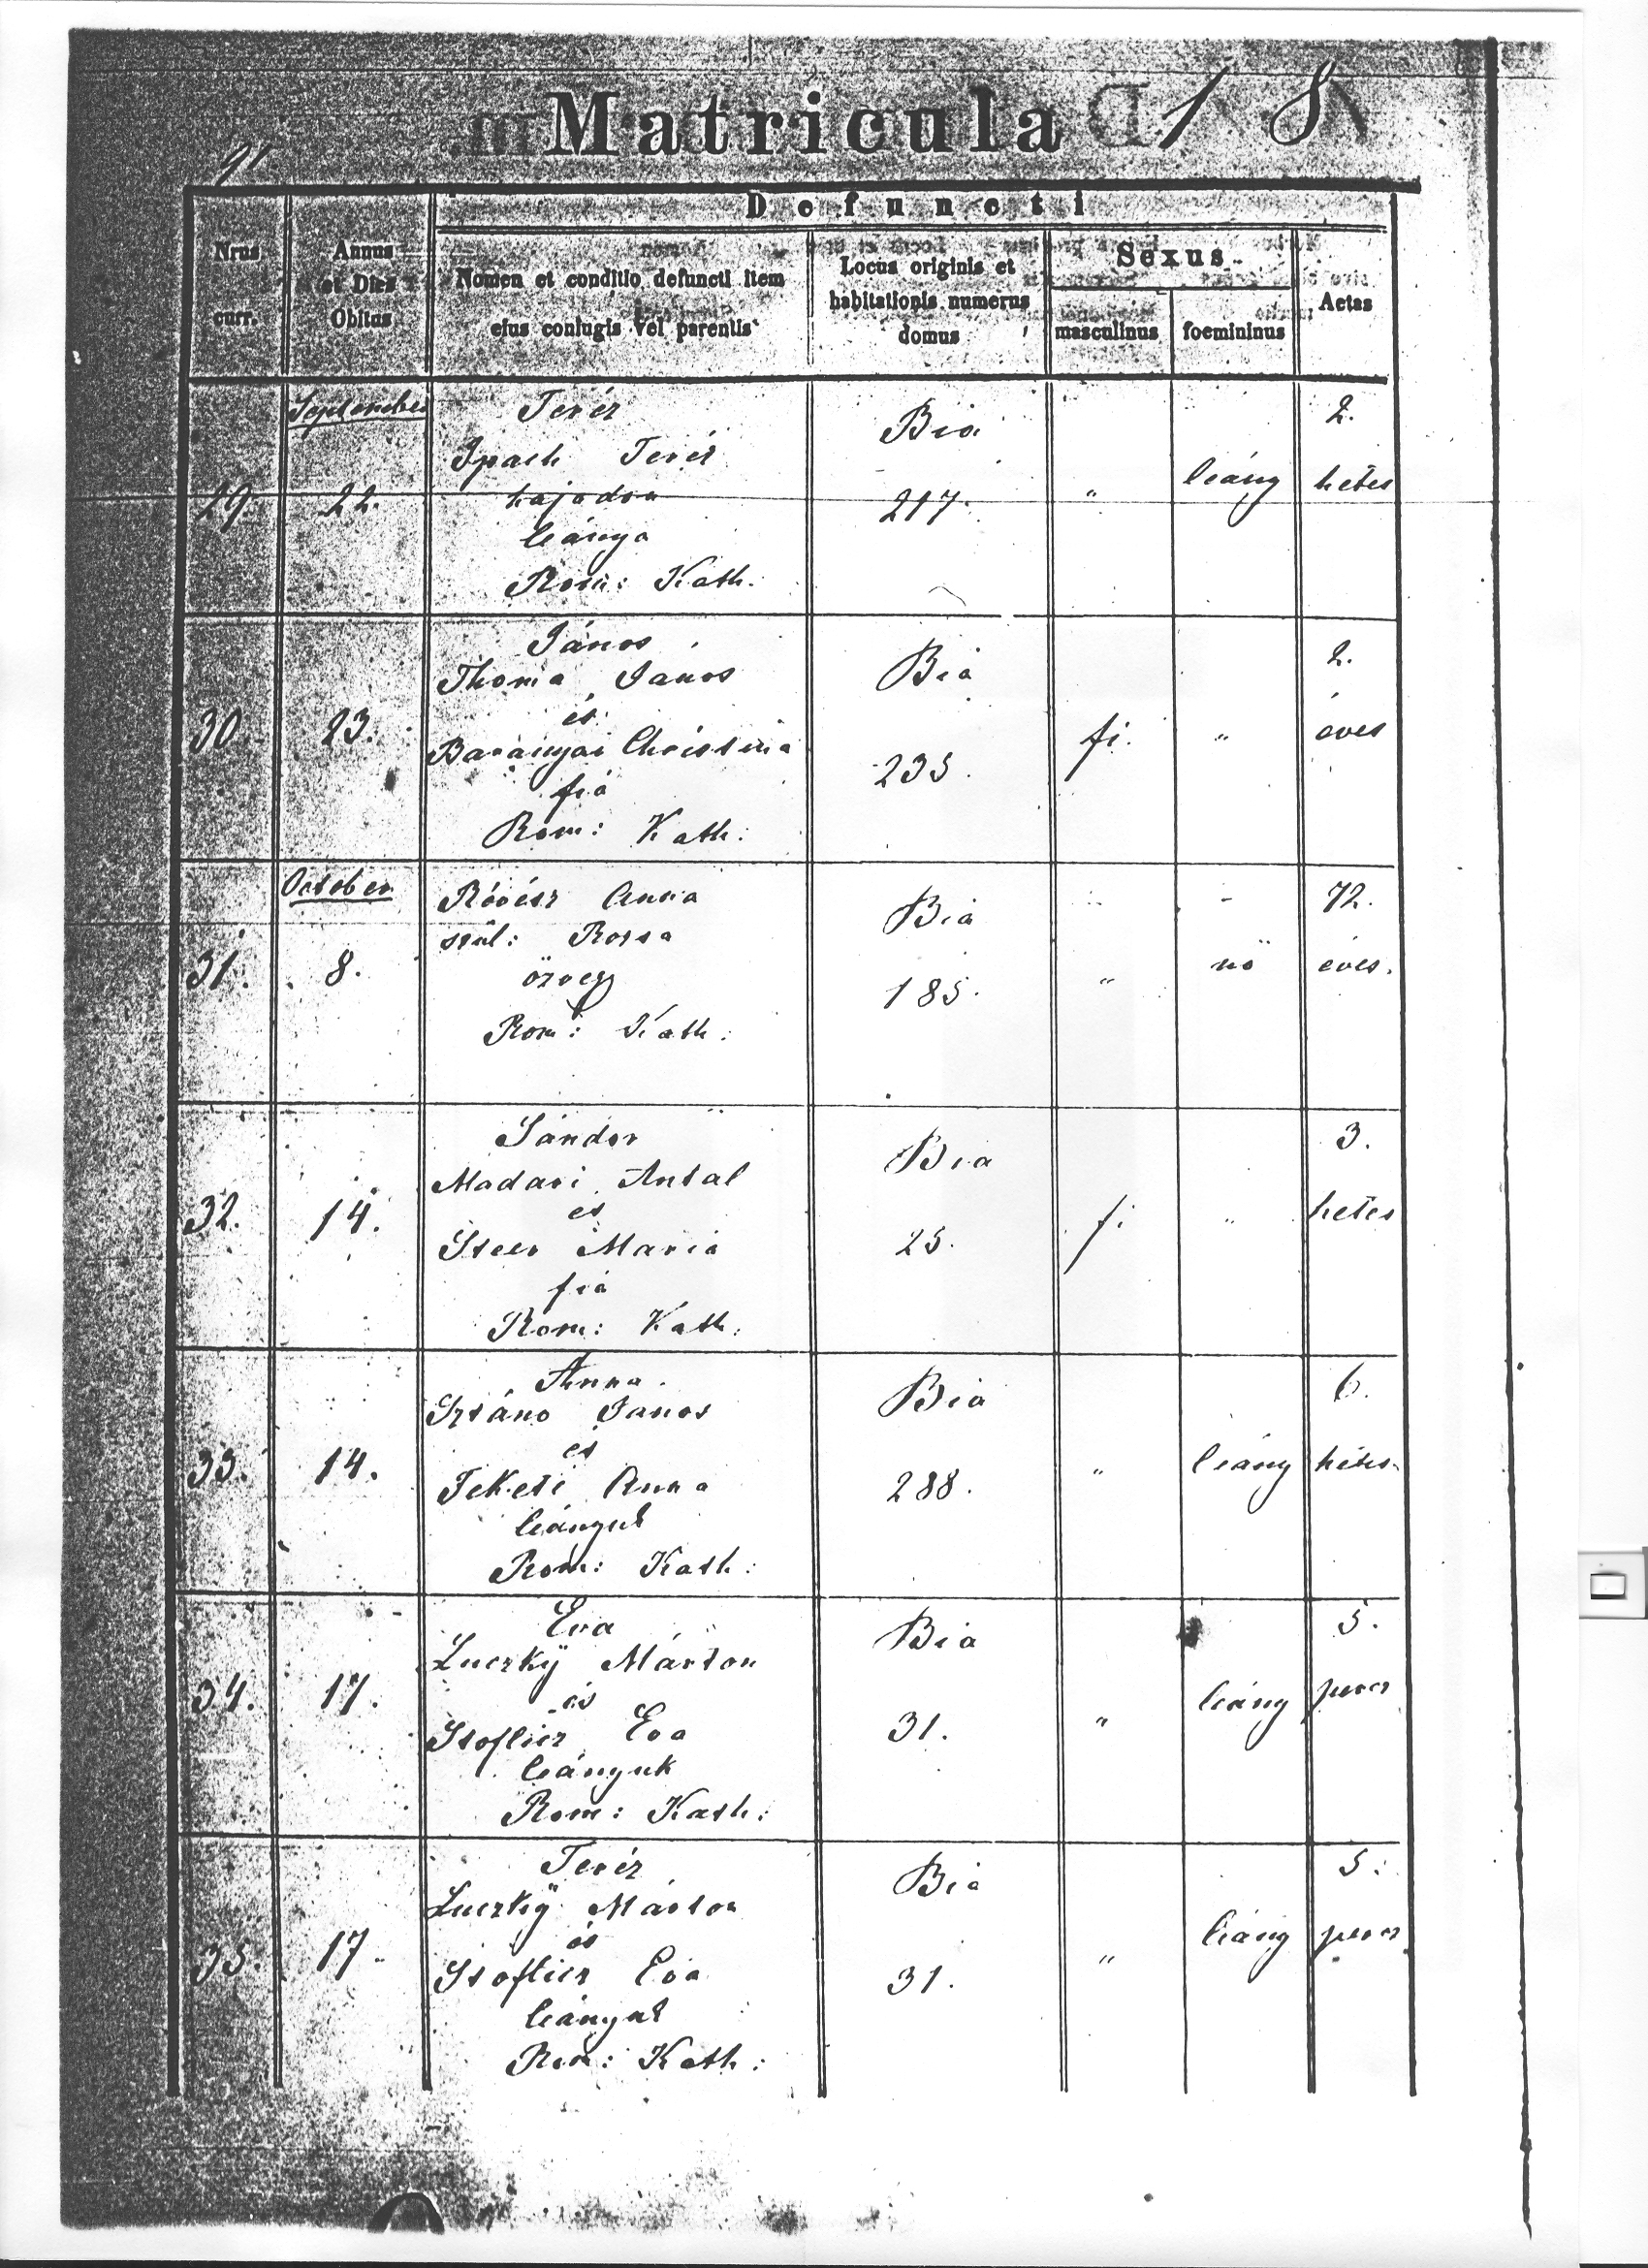 Matricula
91
Defuncti
Nrus curr.
Annus et Dies Obitus
Nomen et conditio defuncti item eius coniugis vel parentis
Locus originis et habitationis numerus domus
Sexus
masculinus
foemininus
Aetas
September
29. 22.
Teréz
Ipach Teréz
hajadon
leánya
Rom: Kath.
Bia
217.
"
leány
2.
hetes
30. 23.
János
Thoma János
és
Baranyai Christina
fia
Rom: Kath:
Bia
235.
fi.
"
2.
éves
October
31. 8.
Révész Anna
szül: Rossa
özvegy
Rom: Kath:
Bia
185.
"
nö
72.
éves.
32. 14.
Sándor
Madari Antal
és
Steer Maria
fia
Rom: Kath:
Bia
25.
fi
"
3.
hetes
33. 14.
Anna
Sztáno Janos
és
Feketi Anna
leányuk
Rom: Kath:
Bia
288.
"
leány
6.
hetes
34. 17.
Eva
Luczky Márton
és
Stoflicz Eva
leányuk
Rom: Kath:
Bia
31.
"
leány
5.
percz
35. 17.
Teréz
Luczky Márton
és
Stoflicz Eva
leányuk
Rom: Kath:
Bia
31.
"
leány
5.
percz